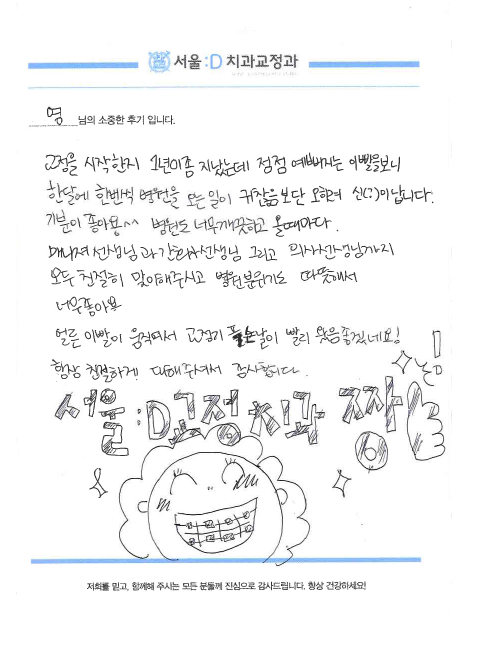 서울:D 치과교정과
영 님의 소중한 후기 입니다.
교정을 시작한지 1년이좀 지났는데 점점 예뻐지는 이빨을보니
한달에 한번씩 병원을 오는일이 귀찮음보단 오히려 신(?)이납니다.
기분이 좋아용^^ 병원도 너무깨끗하고 올때마다.
매니져선생님과 간호사선생님 그리고 의사선생님까지
모두 친절히 맞이해주시고 병원분위기도 따뜻해서
너무좋아요
얼른 이빨이 움직여서 교정기 푸는날이 빨리 왔음좋겠네요!
항상 친절하게 대해주셔서 감사합니다.
서울:D교정치과 짱짱
님!
저희를 믿고, 함께해 주시는 모든 분들께 진심으로 감사드립니다. 항상 건강하세요!